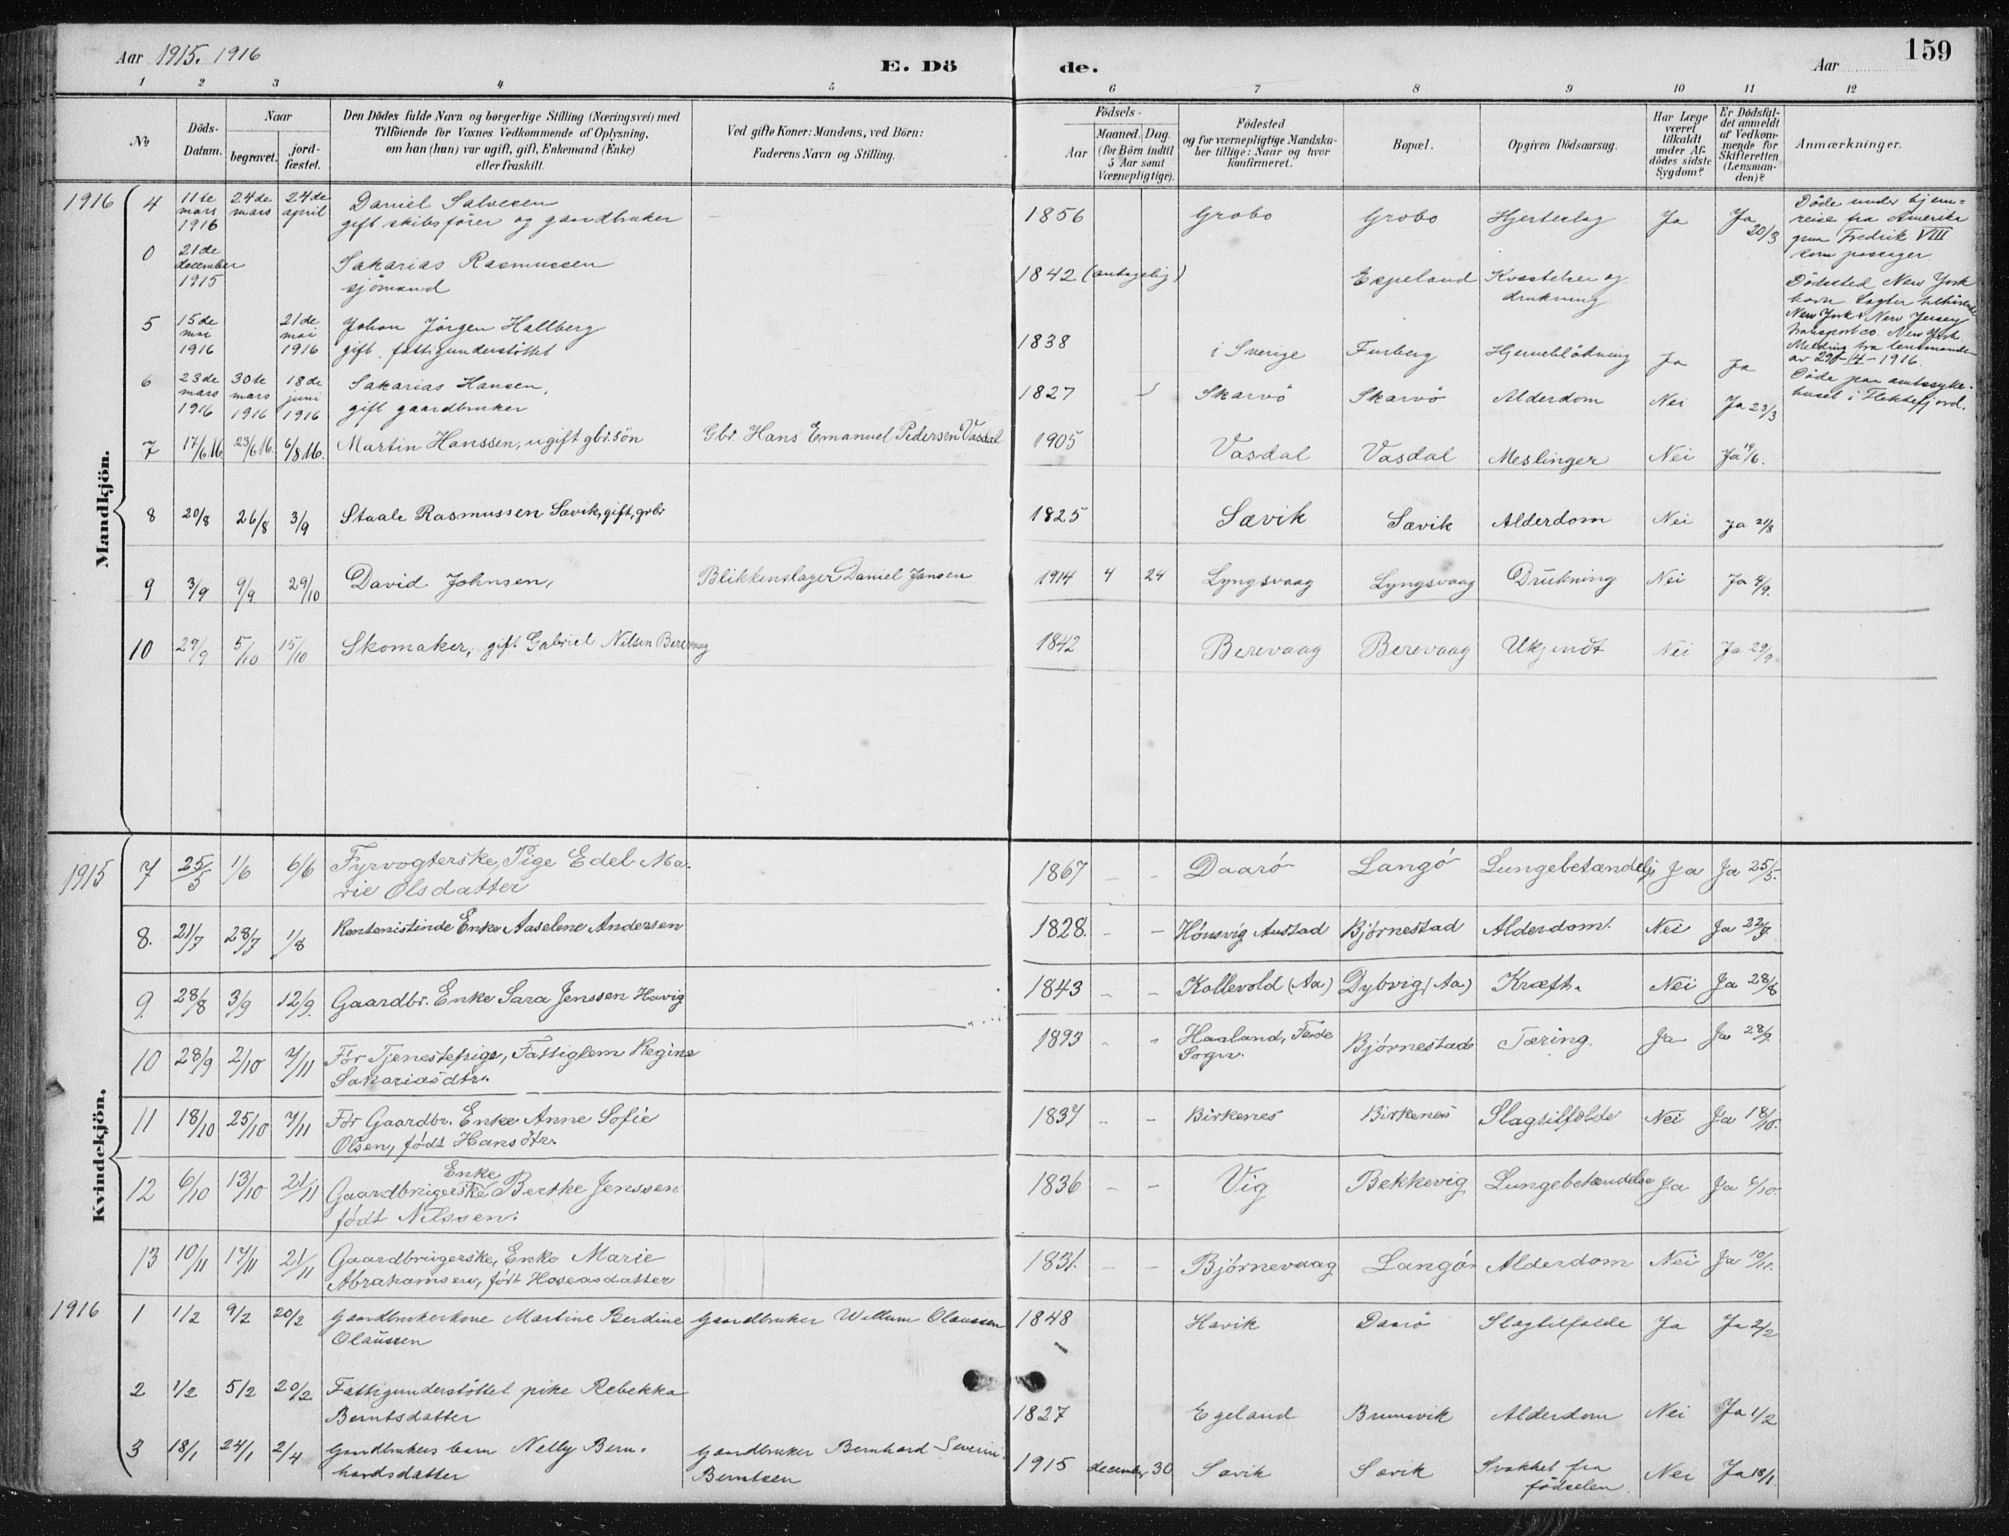 Aar 1915. 1916
E. Dö
de.
Aar
159
1 2 3 4 5 6 7 8 9 10 11 12
No
Döds-Datum.
Naar
begravet.
jord-fæstet.
Den Dödes fulde Navn og borgerlige Stilling (Næringsvei) med
Tilföiende for Voxnes Vedkommende af Oplysning,
om han (hun) var ugift, gift, Enkemand (Enke)
eller fraskilt.
Ved gifte Koner: Mandens, ved Börn:
Faderens Navn og Stilling.
Födsels-
Aar
Maaned. Dag.
(for Börn indtil
5 Aar samt
Værnepligtige).
Födested
og for værnepligtige Mandska-
ber tillige: Naar og hvor
konfirmeret.
Bopæl.
Opgiven Dödsaarsag.
Har Læge
været
tilkaldt
under Af-
dödes sidste
Sygdom?
Er Dödsfal-
det anmeldt
af Vedkom-
mende for
Skifteretten
(Lensman-
den)?
Anmærkninger.
Mandkjön.
1916 4 11te mars 1916 24de mars 24de april Daniel Salvesen gift skibsförer og gaardbruker — 1856 Grobo Grobo Hjerteslag Ja Ja 20/3 Döde under hjem-
reise fra Amerika
paa Fredrik VIII
som passager
0 21de december 1915 Sakarias Rasmussen sjömand 1842 (antagelig) Espeland Kvæstelser og drukning Dödsted New York
havn Lagter tilhörende
New York & New Jersey
Transport co. New York
Melding fra lensmanden
av 29/-4-1916.
5 15de mai 1916 21de mai 1916 Johan Jörgen Hallberg gift fattigunderstöttet 1838 i Sverige Furberg Hjerneblödning Ja Ja
6 23de mars 1916 30te mars 1916 18de juni 1916 Sakarias Hansen, gift gaardbruker 1827 Skarvö Skarvö Alderdom Nei Ja 23/3 Döde paa amtssyke-
huset i Flekkefjord.
7 17/6 16 23/6 16. 6/8 16. Martin Hanssen, ugift gbr. sön Gbr. Hans Emanuel Pedersen Vasdal 1905 Vasdal Vasdal Meslinger Nei Ja 19/6.
8 20/8 26/8 3/9 Staale Rasmussen Sævik, gift, grbr 1825 Sævik Sævik Alderdom Nei Ja 21/8
9 3/9 9/9 29/10 David Johnsen, Blikkenslager Daniel Jansen 1914 4 24 Lyngsvaag Lyngsvaag Drukning Nei Ja 4/9.
10 29/9 5/10 15/10 Skomaker, gift Gabriel Nilsen Berevaag 1842 Berevaag Berevaag Ukjendt Nei Ja 29/9
Kvindekjön.
1915 7 25/5 1/6 6/6 Fyrvogterske, Pige Edel Ma-
rie Olsdatter 1867 — — Daarö Langö Lungebetændelse Ja Ja 25/5.
8. 21/7 28/7 1/8 Rentenistinde Enke Aaselene Andersen 1828. — — Hönsvig Austad Björnestad Alderdom. Nei Ja 22/7.
9. 28/8 3/9 12/9. Gaardbr. Enke Sara Jenssen Havig 1843 — — Kollevold (Aa) Dybvig (Aa) Kræft. Nei Ja 28/8
10 28/9 2/10 7/11 För Tjenestepige, Fattiglem Regine
Sakariasdtr. 1893 Haaland, Feide Sogn. Björnestad Tæring. Ja Ja 28/9.
11 18/10 25/10 7/11 För Gaardbr. Enke Anne Sofie
Olsen, födt Hansdtr. 1837 — — Birkenes Birkenes Slagtilfælde Nei Ja 18/10.
12 6/10 13/10 21/11 Gaardbrugerske Enke Berthe Jenssen
födt Nilssen. 1836 — — Vig Bekkevig Lungebetændelse Ja Ja 6/10.
13 10/11 17/11 21/11 Gaardbrugerske, Enke Marie
Abrahamsen, födt Hoseasdatter 1831. — — Björnevaag Langö Alderdom Nei Ja 10/11.
1916 1 1/2 9/2 20/2 Gaardbrukerkone Martine Berdine
Olaussen Gaardbruker Willum Olaussen 1848 Havik Daarö Slagtilfælde Ja Ja 2/2
2 1/2 5/2 20/2 Fattigunderstöttet pike Rebekka
Berntsdatter 1827 Egeland Brunsvik Alderdom Nei Ja 1/2
3 18/1 24/1 2/4 Gaardbrukers barn Nelly Bern-
hardsdatter Gaardbruker Bernhard Severin
Berntsen 1915 december 30 Sævik Sævik Svakhet fra
födselen. Nei Ja 18/1